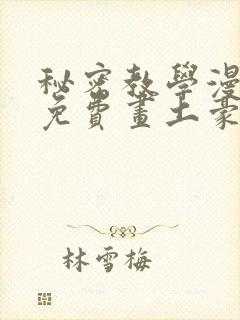 秘密教學漫
免費畫土豪
林雪梅